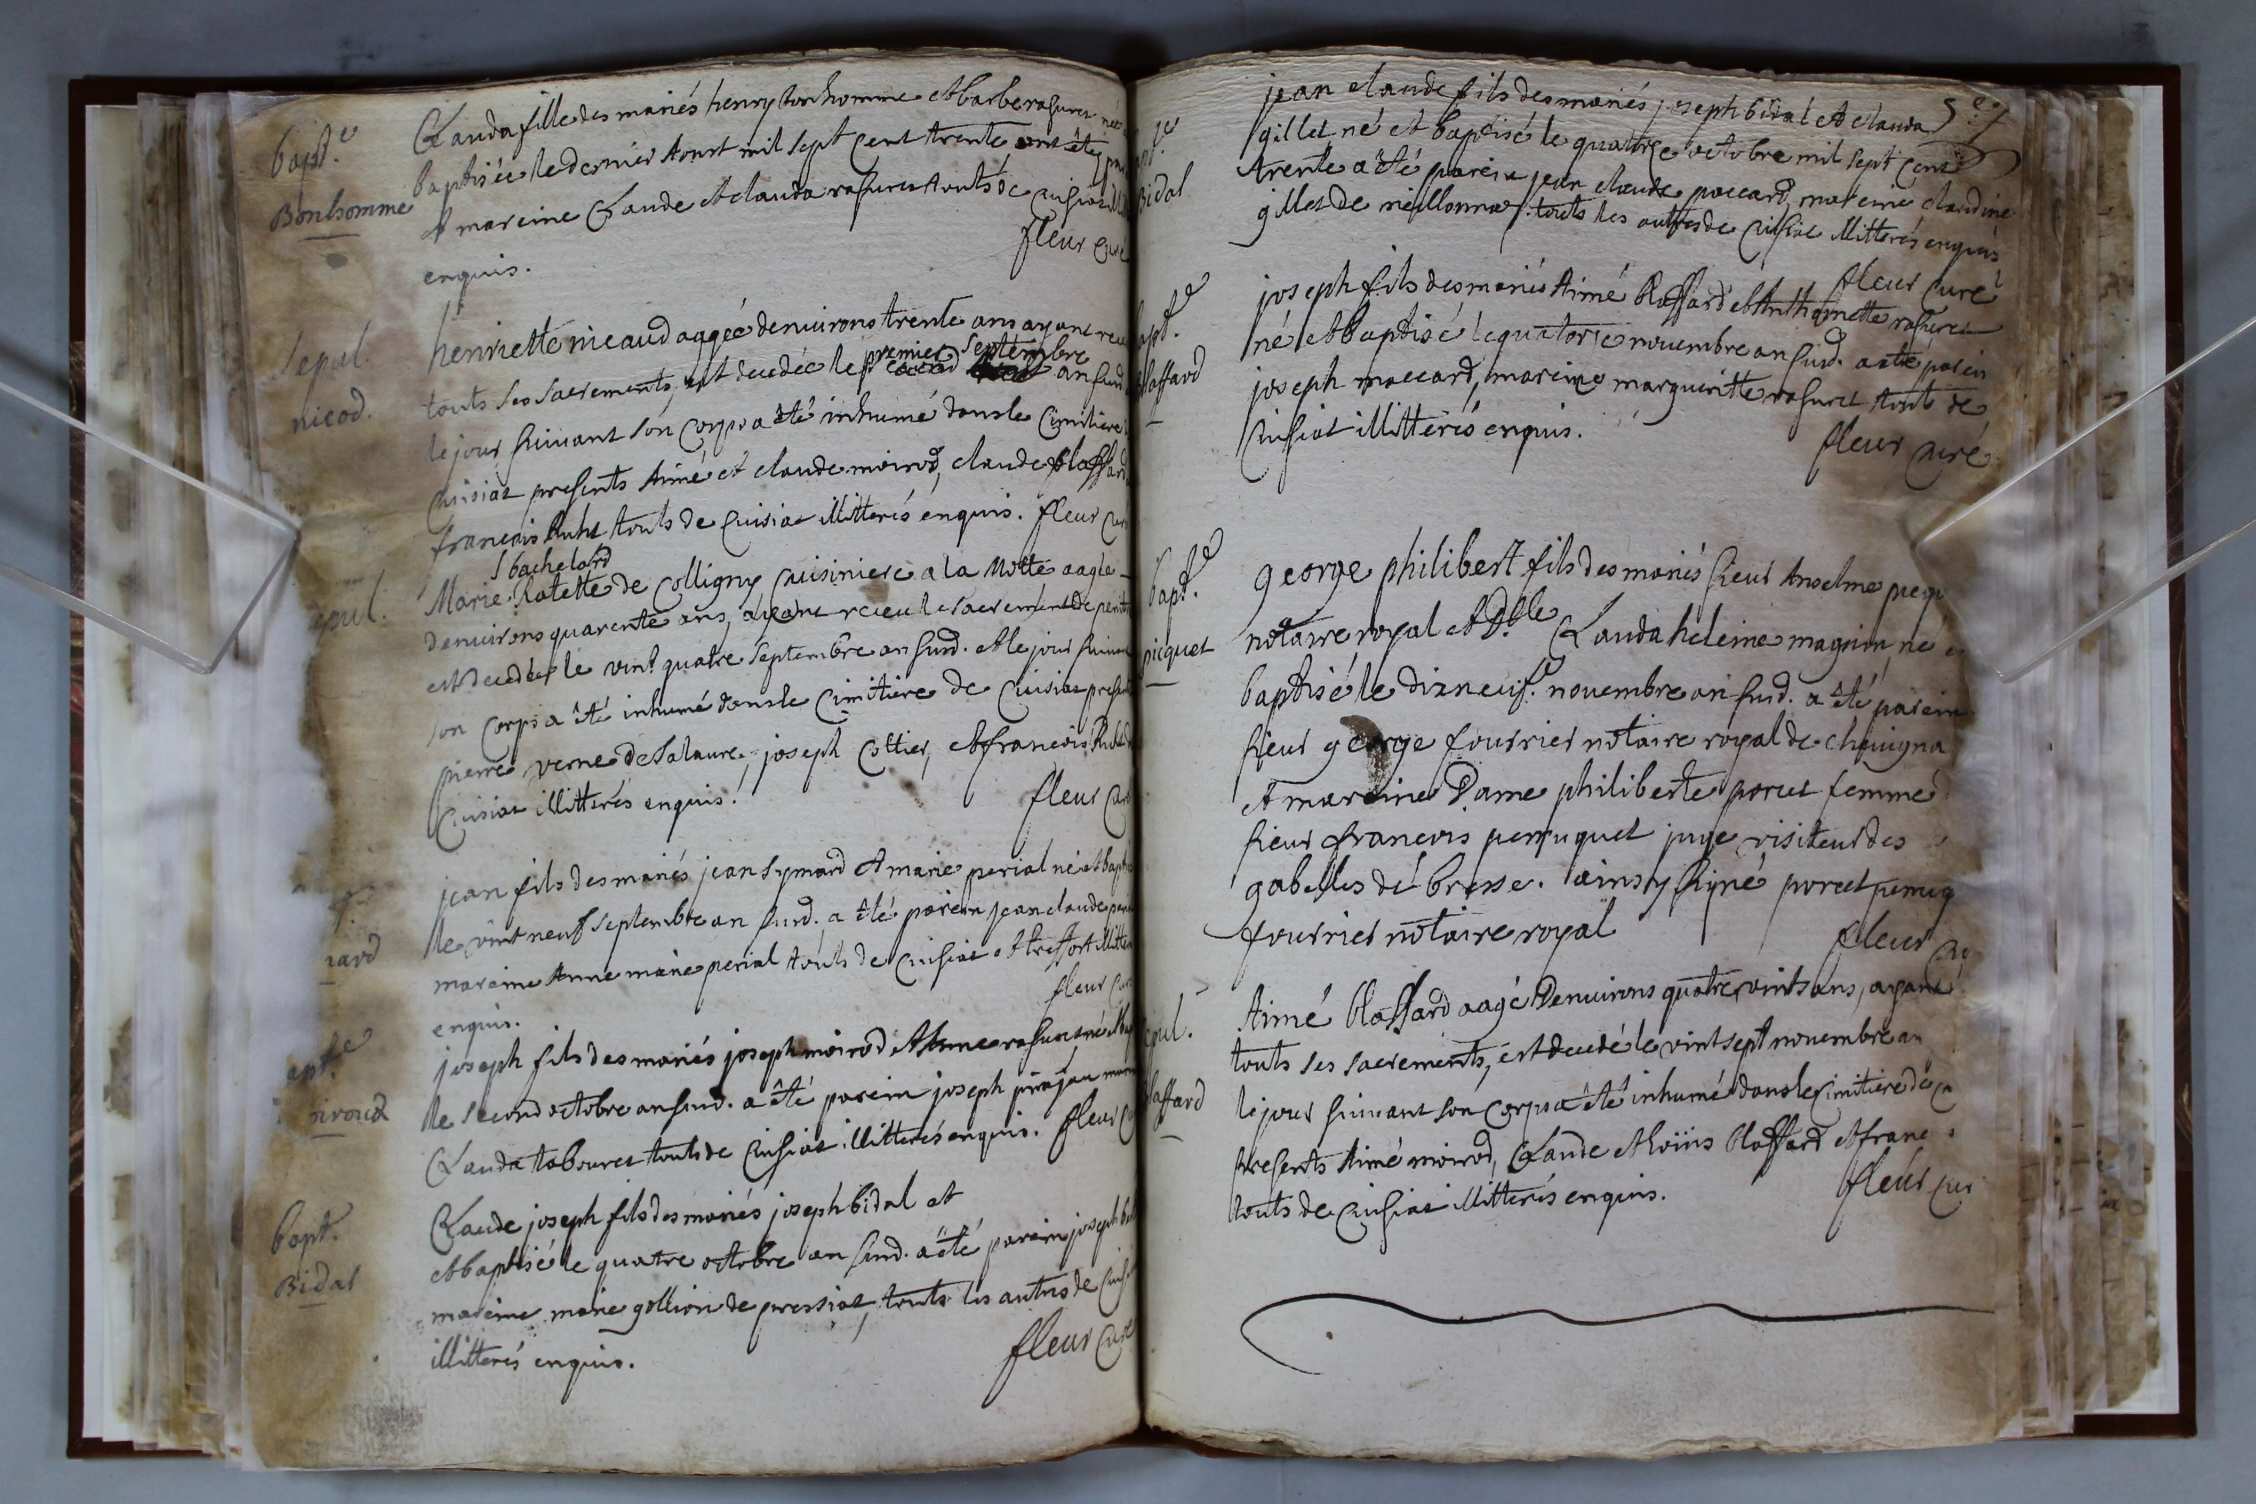 bapt.e
Bonhomme
Clauda fille des mariés henry bonhomme et barbe rasuret née
baptisée le dernier Aoust mil sept cent trente ont été
et mareine Claude et clauda rasurer touts de cuisiat
enquis.
fleur curé
Sepul.
nicod.
henriette nicaud aagée denvirons trente ans ayant receu
touts ses sacrements, est decedée le premier septembre an susd.
le jour suivant son corps a été inhumé dans le cimitiere
Cuisiat presents Aimé et claude moirod, claude blaffard
francois Ruht touts de Cuisiat illitterés enquis. fleur cur
epul.
bachelard
Marie Ratette de Colligny cuisiniere a la Motte aagée
denvirons quarente ans, ayant receu le sacrement de penit
est decedée le vint quatre septembre an susd. et le jour suivant
son corps a été inhumé dans le cimitiere de Cuisiat present
pierre verne de salavre, joseph Cottier, et francois Ruht
Cuisiat illitterés enquis.
fleur curé
nard
jean fils des mariés jean symard et marie perial né et bapt
le vint neuf septembre an susd. a été parein jean claude
mareine Anne marie perial touts de cuisiat et treffort illitter
enquis.
fleur cur
apt.e
oiroud
joseph fils des mariés joseph moirod et Anne rasuret né et bap
le second octobre an susd. a été parein joseph pirajau mar
Clauda tabouret touts de Cuisiat illitterés enquis. fleur cu
bapt.
Bidal
Claude joseph fils des mariés joseph bidal et
et baptisé le quatre octobre an susd. a été parein joseph
mareine marie gollion de pressiat, touts les autres de cuis
illitterés enquis.
fleur curé
pt.e
Bidal
jean claude fils des mariés joseph bidal et clauda
gillet né et baptisé le quatre octobre mil sept cent
trente a été parein jean claude paccard, mareine claudine
gillet de meillonna, touts les autres de cuisiat illitterés enquis
fleur curé
bapt.e
blaffard
joseph fils des mariés Aimé blaffard et Anthoinette rasuret
né et baptisé le quatorze novembre an susd. a été parein
joseph maccard, mareine margueritte rasuret touts de
Cuisiat illitterés enquis.
fleur curé
bapt.e
picquet
george philibert fils des mariés sieur Anselme picqu
notaire royal et D.lle Clauda heleine magnin né e
baptisé le dixneuf.e novembre an susd. a été parein
sieur george fourrier notaire royal de chavigna
et mareine Dame philiberte poret femme
sieur francois perruquet juge visiteur des
gabelles de bresse. ainsy signé poret perruq
fourrier notaire royal
fleur cu
epul.
blaffard
Aimé blaffard aagé Denvirons quatre vints ans, ayant
touts ses sacrements, est decedé le vint sept novembre an
le jour suivant son corps a été inhumé dans le cimitiere de c
presents Aimé moirod, Claude et loüis blaffard et franc
touts de cuisiat illitterés enquis.
fleur cur